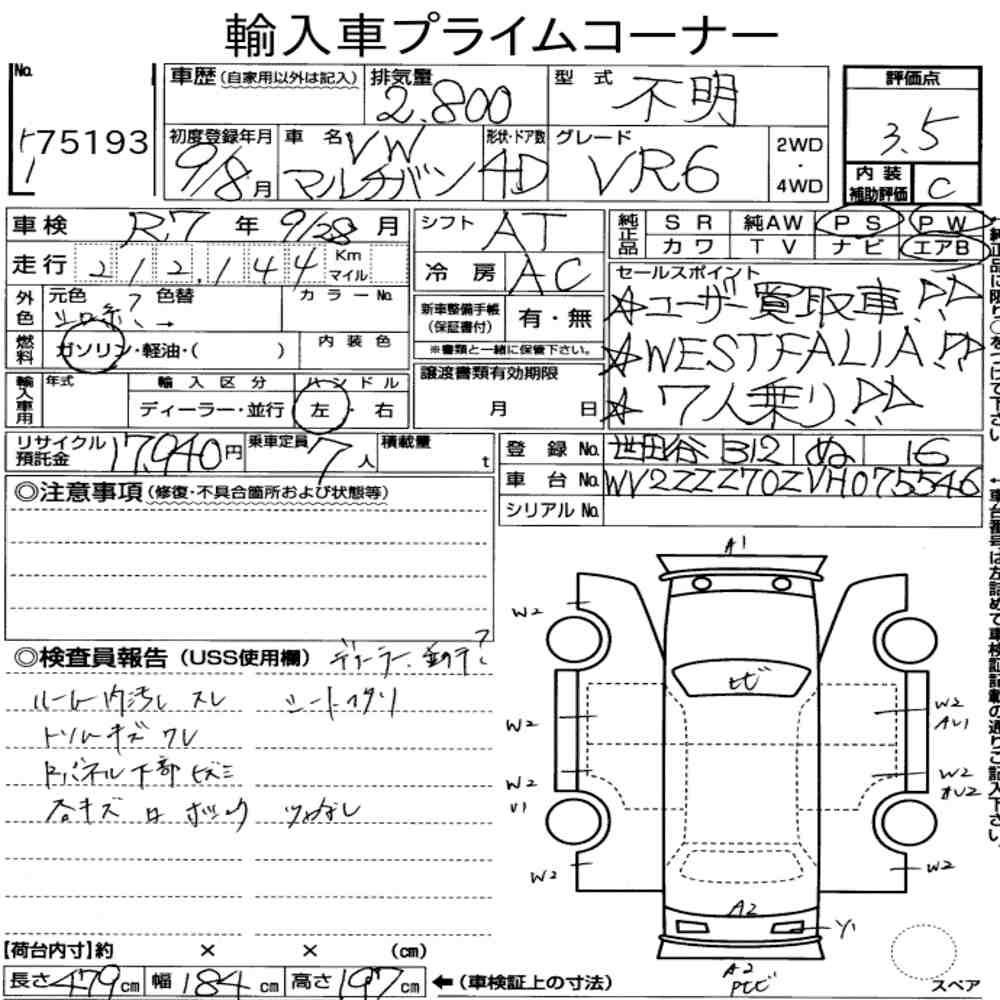 輸入車プライムコーナー
No. 75193
車歴 (自家用以外は記入) 排気量 2,800 型式 不明
評価点 3.5
初度登録年月 9/8月 車名 VW マルチバン 形状・ドア数 4D グレード VR6 2WD・4WD
内装補助評価 C
車検 R.7年 9/28月 シフト AT 純正品 SR 純AW PS PW
カワ TV ナビ エアB
走行 212,144 Km マイル 冷房 AC
外色 元色 色替 カラーNo.
セールスポイント
☆ユーザー買取車!!
☆WESTFALIA!!
☆7人乗り!!
新車整備手帳(保証書付) 有・無
※書類と一緒に保管下さい。
燃料 ガソリン・軽油・( ) 内装色
輸入車用 年式 輸入区分 ディーラー・並行 ハンドル 左・右
譲渡書類有効期限 月 日
リサイクル預託金 17,940円 乗車定員 7人 積載量 t
登録No. 世田谷 312 ぬ 16
車台No. WV2ZZZ70ZVH075546
シリアルNo.
◎注意事項 (修復・不具合箇所および状態等)
◎検査員報告 (USS使用欄) ディーラー
ルーム内汚レ スレ
キズ ワレ
下部
各キズ
A1
W2
W2
W2
V1
W2
W2
W2
W2
A2
Y1
A2
【荷台内寸】約 × × (cm)
長さ 479cm 幅 184cm 高さ 197cm ←(車検証上の寸法)
スペア
純正品に限り○をつけて下さい。
車台番号は左詰めで車検証記載の通りご記入下さい。